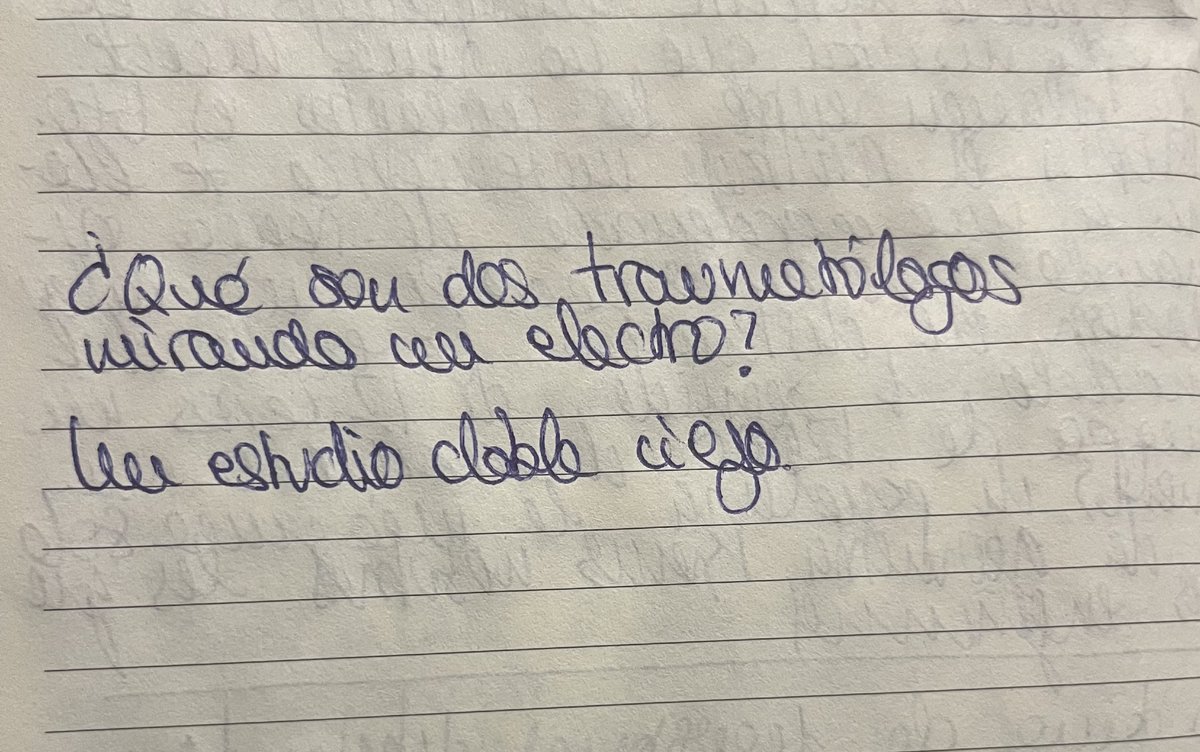 ¿Qué son dos traumatólogos
mirando un electro?
Un estudio doble ciego.